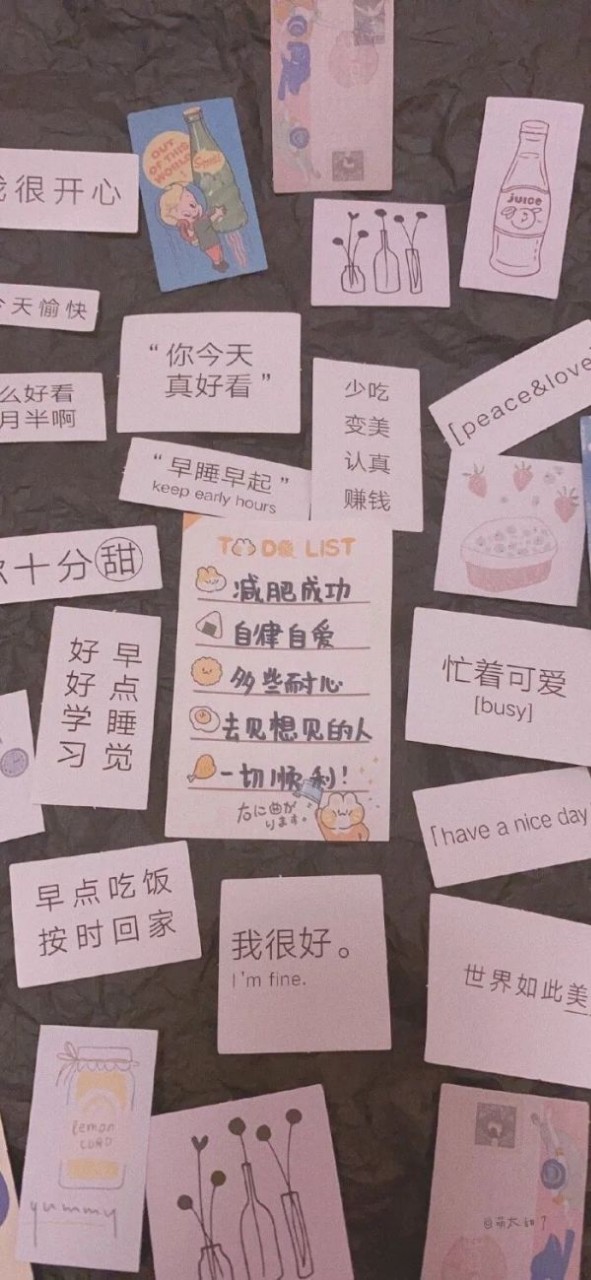 OUT
OF THIS
WORLD
很开心
JUICE
天愉快
“你今天
真好看”
么好看
月半啊
少吃
变美
认真
赚钱
[peace&love
“早睡早起”
keep early hours
十分甜
TO DO LIST
减肥成功
自律自爱
多些耐心
去见想见的人
一切顺利!
右に曲が
ります。
早点睡觉
好好学习
忙着可爱
[busy]
「have a nice day
早点吃饭
按时回家
我很好。
I'm fine.
世界如此美
lemon
CURD
yummy